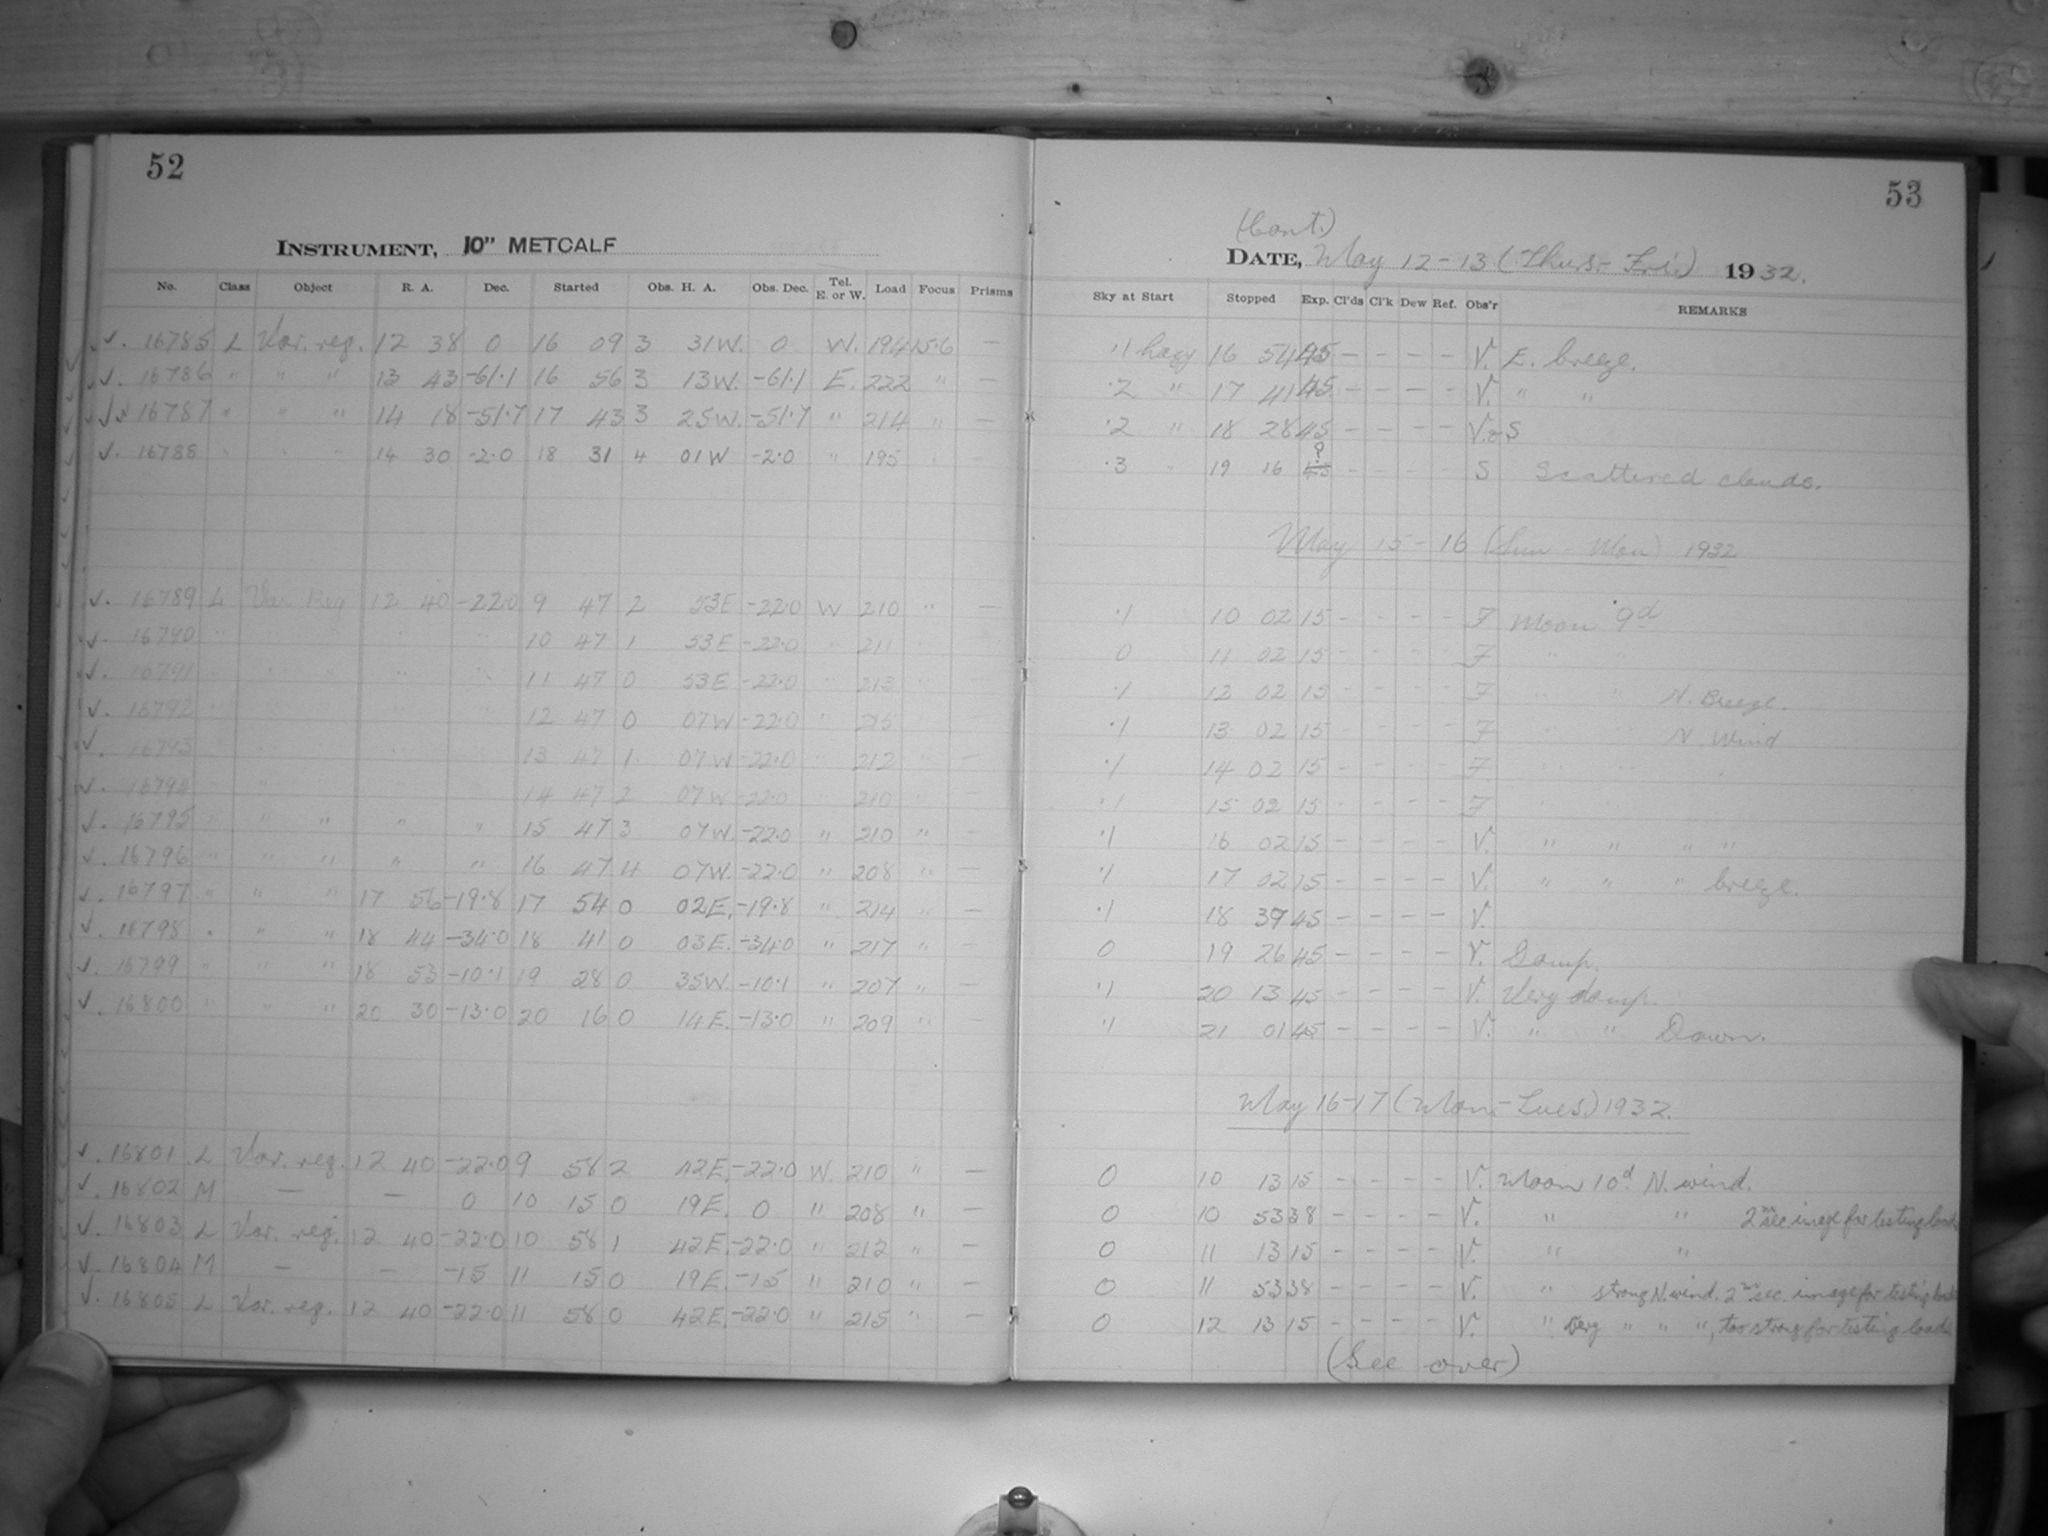 52
INSTRUMENT, 10" METCALF
No. Class Object R. A. Dec. Started Obs. H. A. Obs. Dec. Tel. E. or W. Load Focus Prisms
✓. 16785 L Var. reg. 12 38 0 16 09 3 31W. 0 W. 194 15.6 —
✓. 16786 " " " 13 43 -61.1 16 56 3 13W. -61.1 E. 222 " —
✓✓ 16787 " " " 14 18 -51.7 17 43 3 25W. -51.7 " 214 " —
✓. 16788 " " " 14 30 -2.0 18 31 4 01W -2.0 " 195 " —
✓. 16789 L Var Reg 12 40 -22.0 9 47 2 53E -22.0 W 210 " —
✓. 16790 " " " " " 10 47 1 53E -22.0 " 211
✓. 16791 " " " " " 11 47 0 53E -22.0 " 213
✓. 16792 " " " " " 12 47 0 07W -22.0 " 215
✓. 16793 " " " " " 13 47 1 07W -22.0 " 212 " —
✓. 16794 " " " " " 14 47 2 07W -22.0 " 210 " —
✓. 16795 " " " " " 15 47 3 07W. -22.0 " 210 " —
✓. 16796 " " " " " 16 47 4 07W. -22.0 " 208 " —
✓. 16797 " " " 17 56 -19.8 17 54 0 02E. -19.8 " 214 " —
✓. 16798 " " " 18 44 -34.0 18 41 0 03E. -34.0 " 217 " —
✓. 16799 " " " 18 53 -10.1 19 28 0 35W. -10.1 " 207 " —
✓. 16800 " " " 20 30 -13.0 20 16 0 14E. -13.0 " 209 " —
✓. 16801 L Var. reg. 12 40 -22.0 9 58 2 42E. -22.0 W. 210 " —
✓. 16802 M — — 0 10 15 0 19E. 0 " 208 " —
✓. 16803 L Var. reg. 12 40 -22.0 10 58 1 42E. -22.0 " 212 " —
✓. 16804 M — — -15 11 15 0 19E -15 " 210 " —
✓. 16805 L Var. reg. 12 40 -22.0 11 58 0 42E. -22.0 " 215 " —
53
(Cont.)
DATE, May 12-13 (Thurs.- Fri.) 1932.
Sky at Start Stopped Exp. Cl'ds Cl'k Dew Ref. Obs'r REMARKS
.1 hazy 16 54 45 - - - - V. E. breeze.
.2 " 17 41 45 - - - - V. " "
.2 " 18 28 45 - - - - V.&S
?
.3 " 19 16 45 - - - - S Scattered clouds.
May 15-16 (Sun - Mon) 1932
.1 10 02 15 - - - - F Moon 9d
0 11 02 15 - - - - F " "
.1 12 02 15 - - - - F " " N. Breeze.
.1 13 02 15 - - - - F " " N. Wind
.1 14 02 15 - - - - F " " "
.1 15 02 15 - - - - F "
.1 16 02 15 - - - - V. " " " "
.1 17 02 15 - - - - V. " " " breeze.
.1 18 39 45 - - - - V.
0 19 26 45 - - - - V. Damp.
.1 20 13 45 - - - - V. Very damp.
.1 21 01 45 - - - - V. " " Dawn.
May 16-17 (Mon.- Tues.) 1932.
0 10 13 15 - - - - V. Moon 10d. N. wind.
0 10 53 38 - - - - V. " " 2m sec image for testing load
0 11 13 15 - - - - V. " "
0 11 53 38 - - - - V. " strong N. wind. 2m sec. image for testing load
0 12 13 15 - - - - V. " Very " " ", too strong for testing loads
(See over)